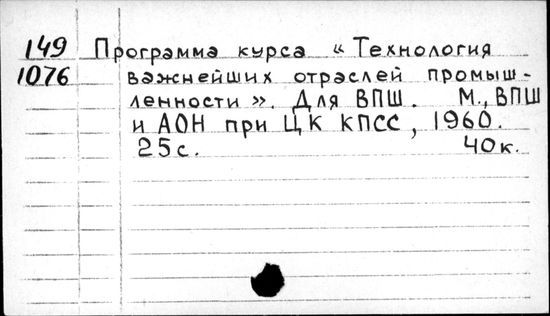 149 Программа курса «Технология
1076 важнейших отраслей промыш-
ленности». Для ВПШ. М., ВПШ
и АОН при ЦК КПСС, 1960.
25с. 40к.